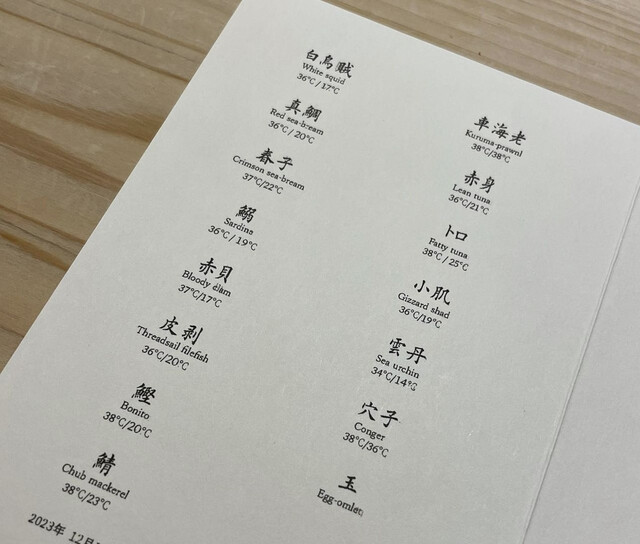 白烏賊
White squid
36℃ / 17℃
真鯛
Red sea-bream
36℃ / 20℃
春子
Crimson sea-bream
37℃/22℃
鰯
Sardina
36℃ / 19℃
赤貝
Bloody clam
37℃/17℃
皮剥
Threadsail filefish
36℃/20℃
鰹
Bonito
38℃/20℃
鯖
Chub mackerel
38℃/23℃
2023年 12月
車海老
Kuruma-prawnl
38℃/38℃
赤身
Lean tuna
36℃/21℃
トロ
Fatty tuna
38℃ / 25℃
小肌
Gizzard shad
36℃/19℃
雲丹
Sea urchin
34℃/14℃
穴子
Conger
38℃/36℃
玉
Egg-omlet